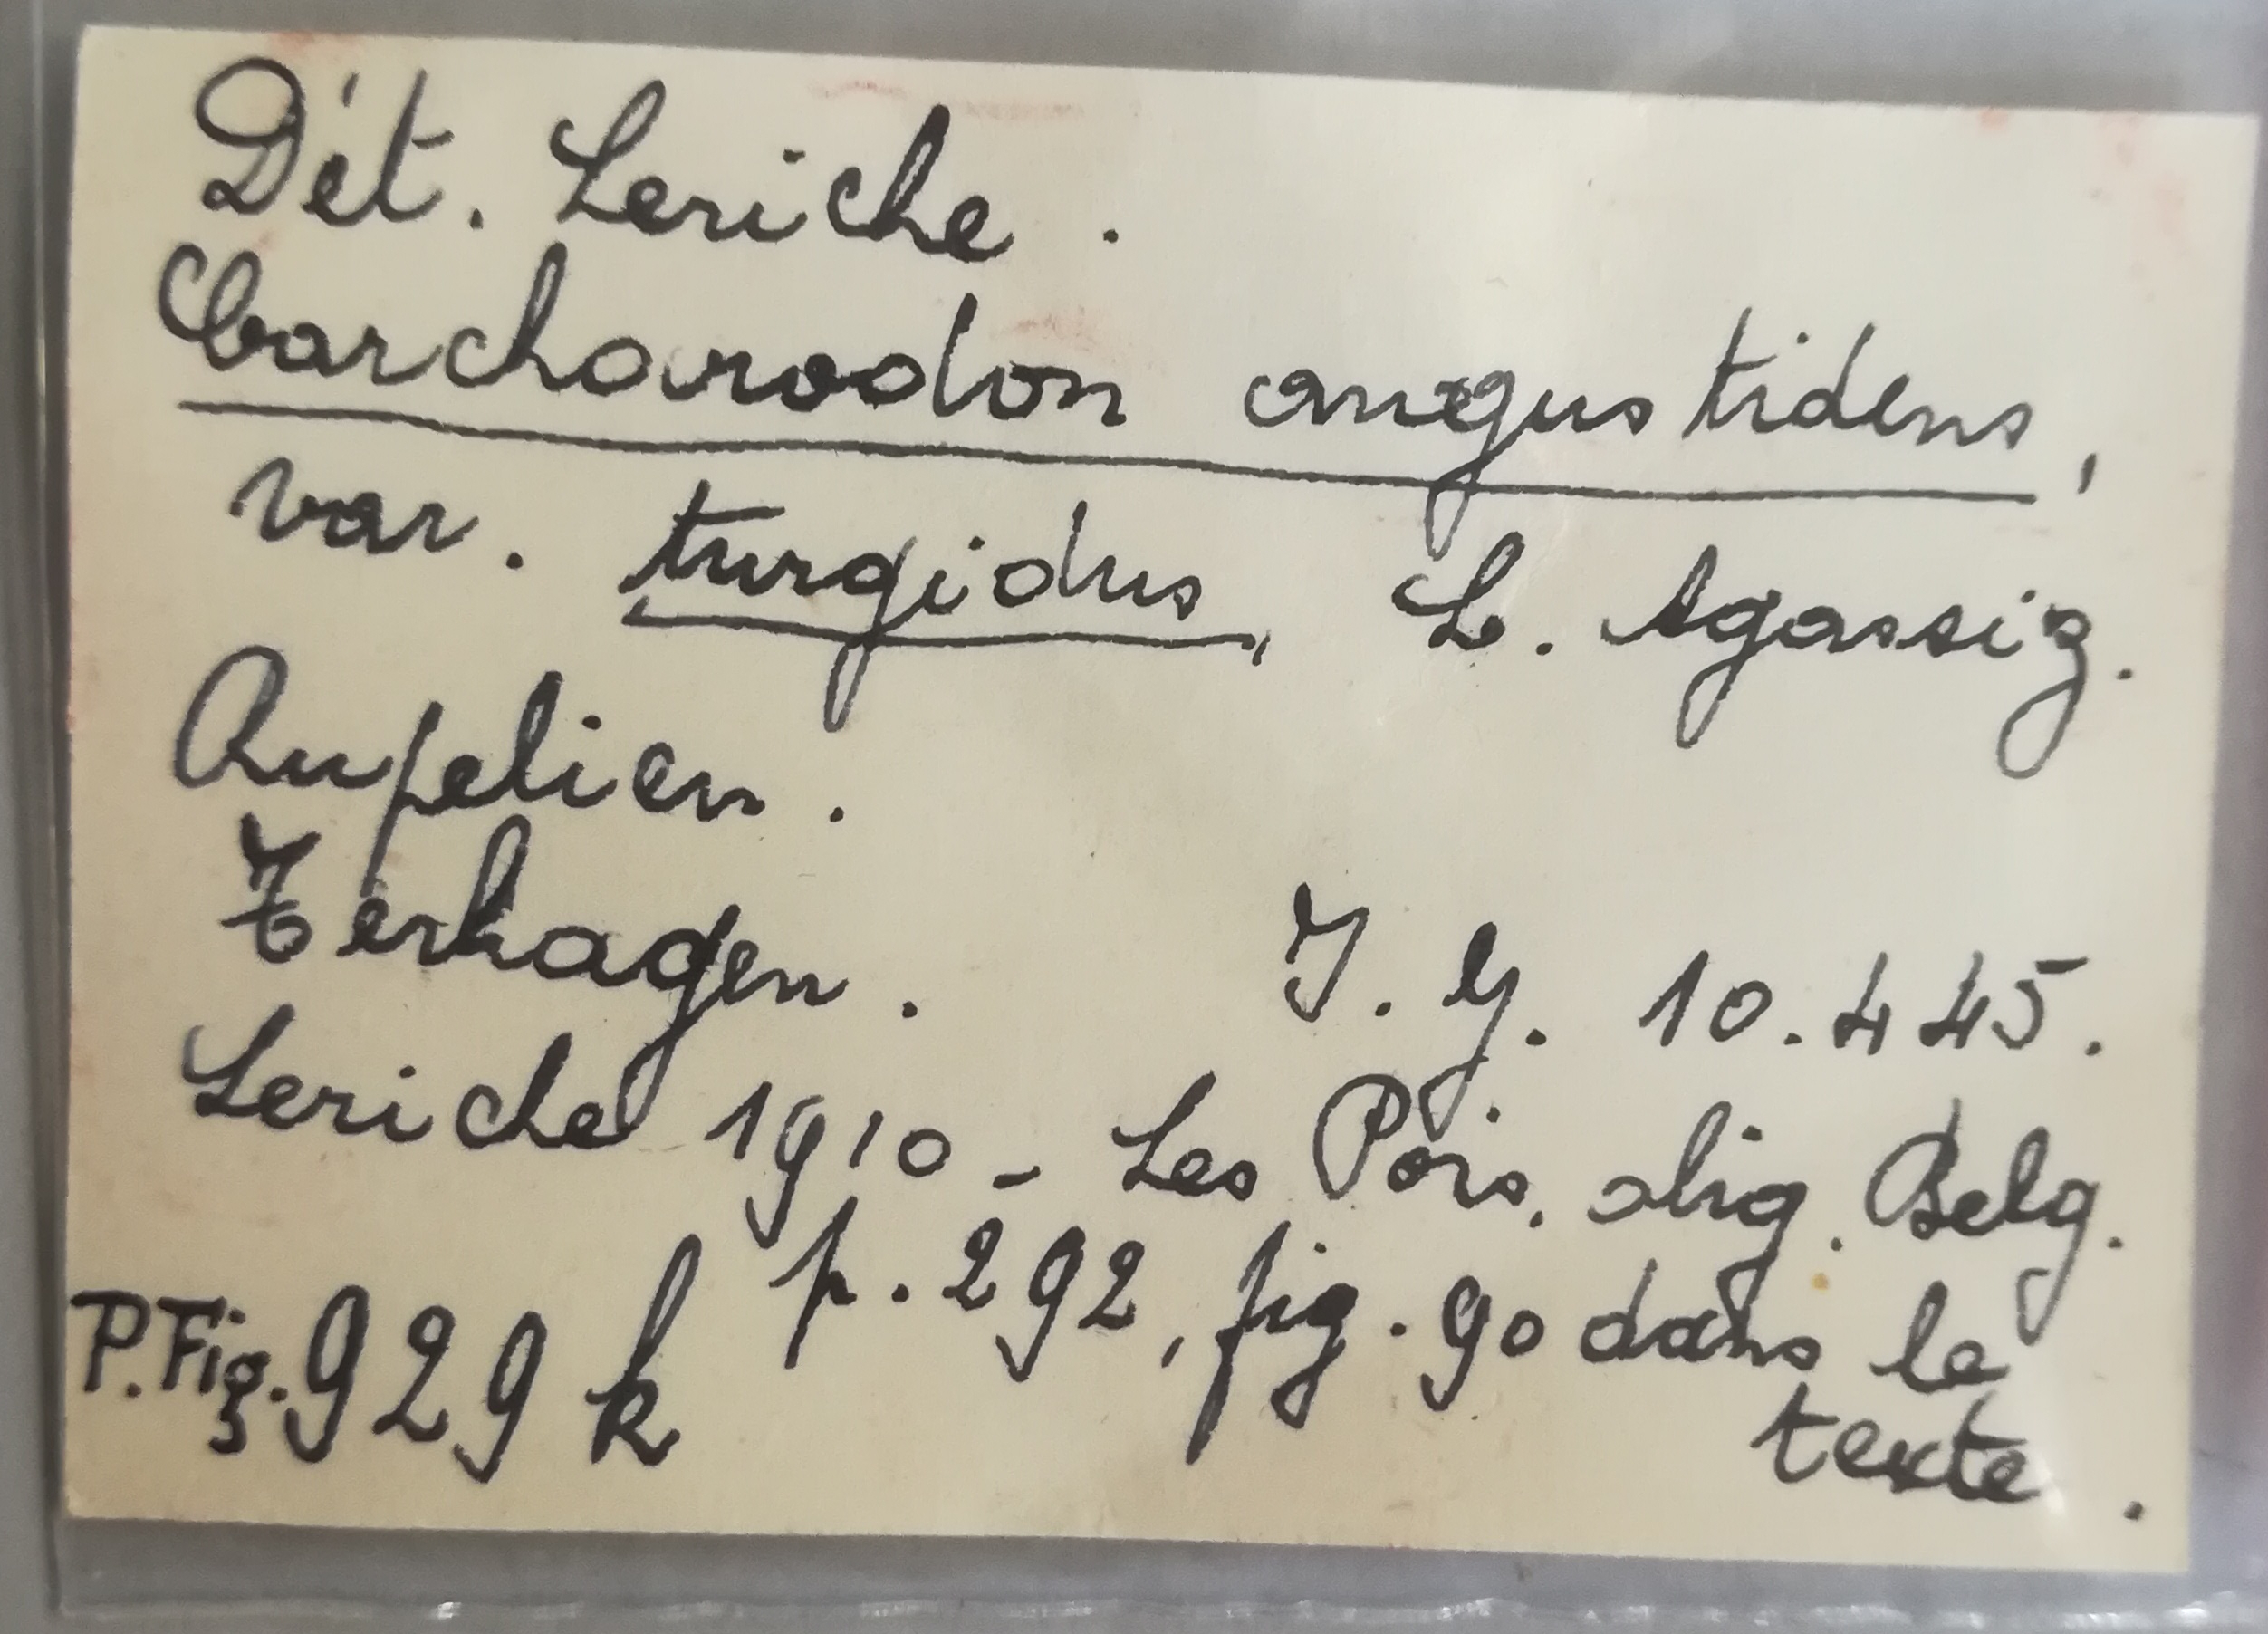 Dét. Leriche.
Carcharodon angustidens,
var. turgidus, L. Agassiz.
Rupelien.
Terhagen. I. G. 10.445.
Leriche 1910 - Les Pois. olig. Belg.
p. 292, fig. 90 dans le
texte.
P. Fig. 929 k